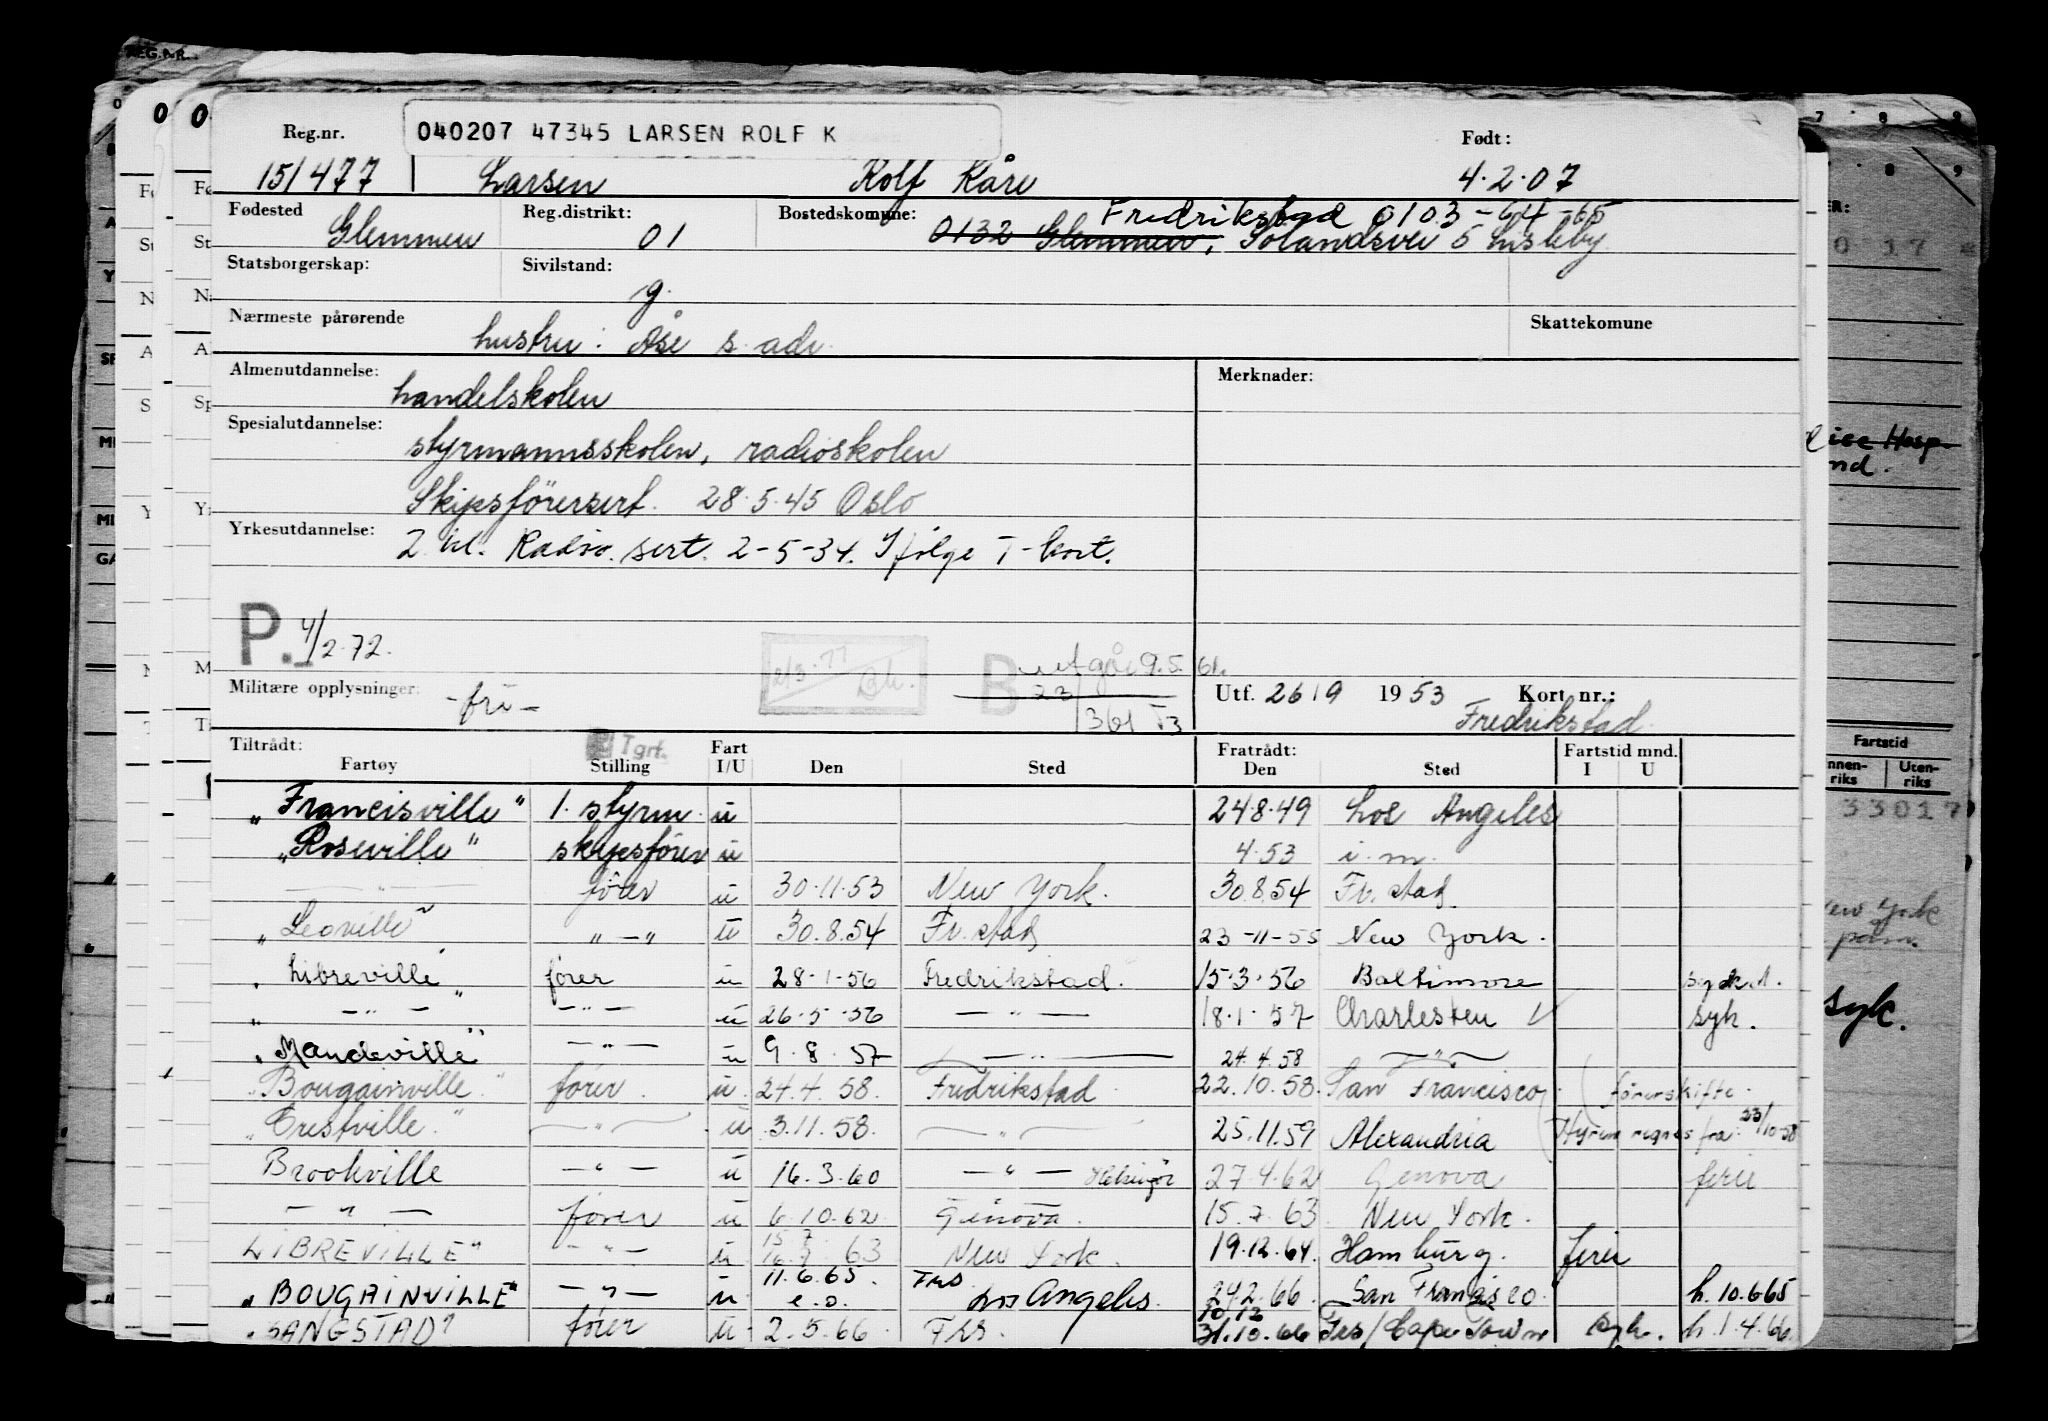 Reg.nr. 040207 47345 LARSEN ROLF K Født:
151477 Larsen Rolf Kåre 4.2.07
Fødested Reg.distrikt: Bostedskomune: Fredrikstad 0103-64-65
Glemmen 01 0132 Glemmen, Sølandsvei 5 Lisleby
Statsborgerskap: Sivilstand:
g.
Nærmeste pårørende Skattekomune
hustru: Åse s. adr.
Almenutdannelse: Merknader:
handelskolen
Spesialutdannelse:
styrmannsskolen, radioskolen
Skipsförersert. 28.5.45 Oslo
Yrkesutdannelse: 2. kl. Radio.sert. 2-5-34. Ifølge T-kort.
P. 4/2-72.
B utgår 9.5.61.
Militære opplysninger: -fri- Utf. 26/9 1953 Kort nr.:
Fredrikstad
Tiltrådt: Tgrf. Fart Fratrådt: Fartstid mnd.
Fartøy Stilling I/U Den Sted Den Sted I U
"Francisville" 1. styrm. u 24.8.49 Los Angeles
"Roseville" skipsförer u 4.53 i.m.
— " — förer u 30.11.53 New York. 30.8.54 Fr.stad.
"Leoville" " — " u 30.8.54 Fr.stad 23-11-55 New York.
"Libreville" förer u 28-1-56 Fredrikstad. 15.3.56 Baltimore
" — " — — " — u 26.5.56 — " — 18.1.57 Charlesten syk.
"Mandeville" — " — u 9.8.57 — " — 24.4.58 — " —
"Bougainville" förer. u 24.4.58. Fredrikstad 22.10.58. San Francisco förerskifte
"Crestville" — " — u 3.11.58. — " — 25.11.59 Alexandria Hyren regnes fra 23/10-58
Brookville — " — u 16.3.60 — " — Helsingör 27.4.62 Genova ferie
— " — förer u 6.10.62 Genova. 15.7.63 New York.
LIBREVILLE" — " — u 15.7.63 New York. 19.12.64. Hamburg. ferie
"BOUGAINVILLE" — " — u 11.6.65. e.o. Frs Los Angeles. 24.2.66. San Francisco. h.10.6.65
"SANGSTAD" förer u 2.5.66 Frs. 10.12 31.10.66 Frs/Cape Town syk. h.1.4.66.
Fartstid
Innen-riks Uten-riks
33017
New York
syk.